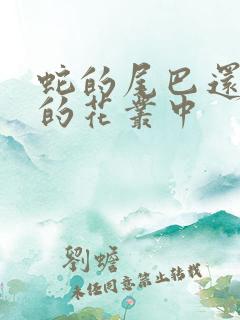 蛇的尾巴還
的花叢中
劉蟾
未經同意禁止轉載